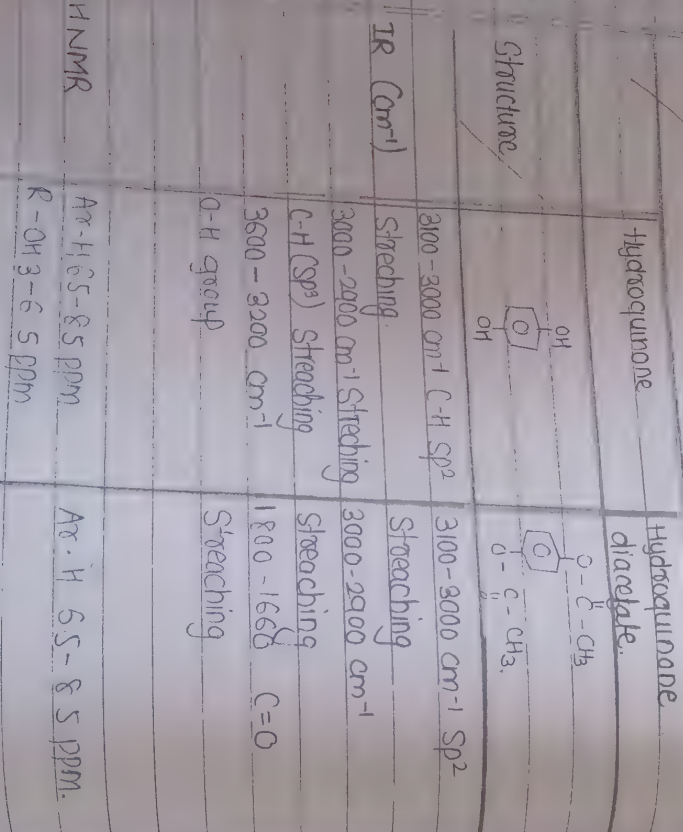 Hydroquinone
Hydroquinone
diacetate.
Structure
OH
OH
O - C - CH3
O - C - CH3.
IR (cm-1)
3100-3000 cm-1 C-H Sp2
Streching.
3000-2900 cm-1 Streching
C-H (Sp3) Streaching
3600 - 3200 cm-1
O-H group
3100-3000 cm-1 Sp2
Streaching
3000-2900 cm-1
Streaching
1800-1660 C=O
Streaching
H NMR
Ar-H 6 5-8 5 ppm
R-OH 3-6 5 ppm
Ar-H 6 5-8 5 ppm.